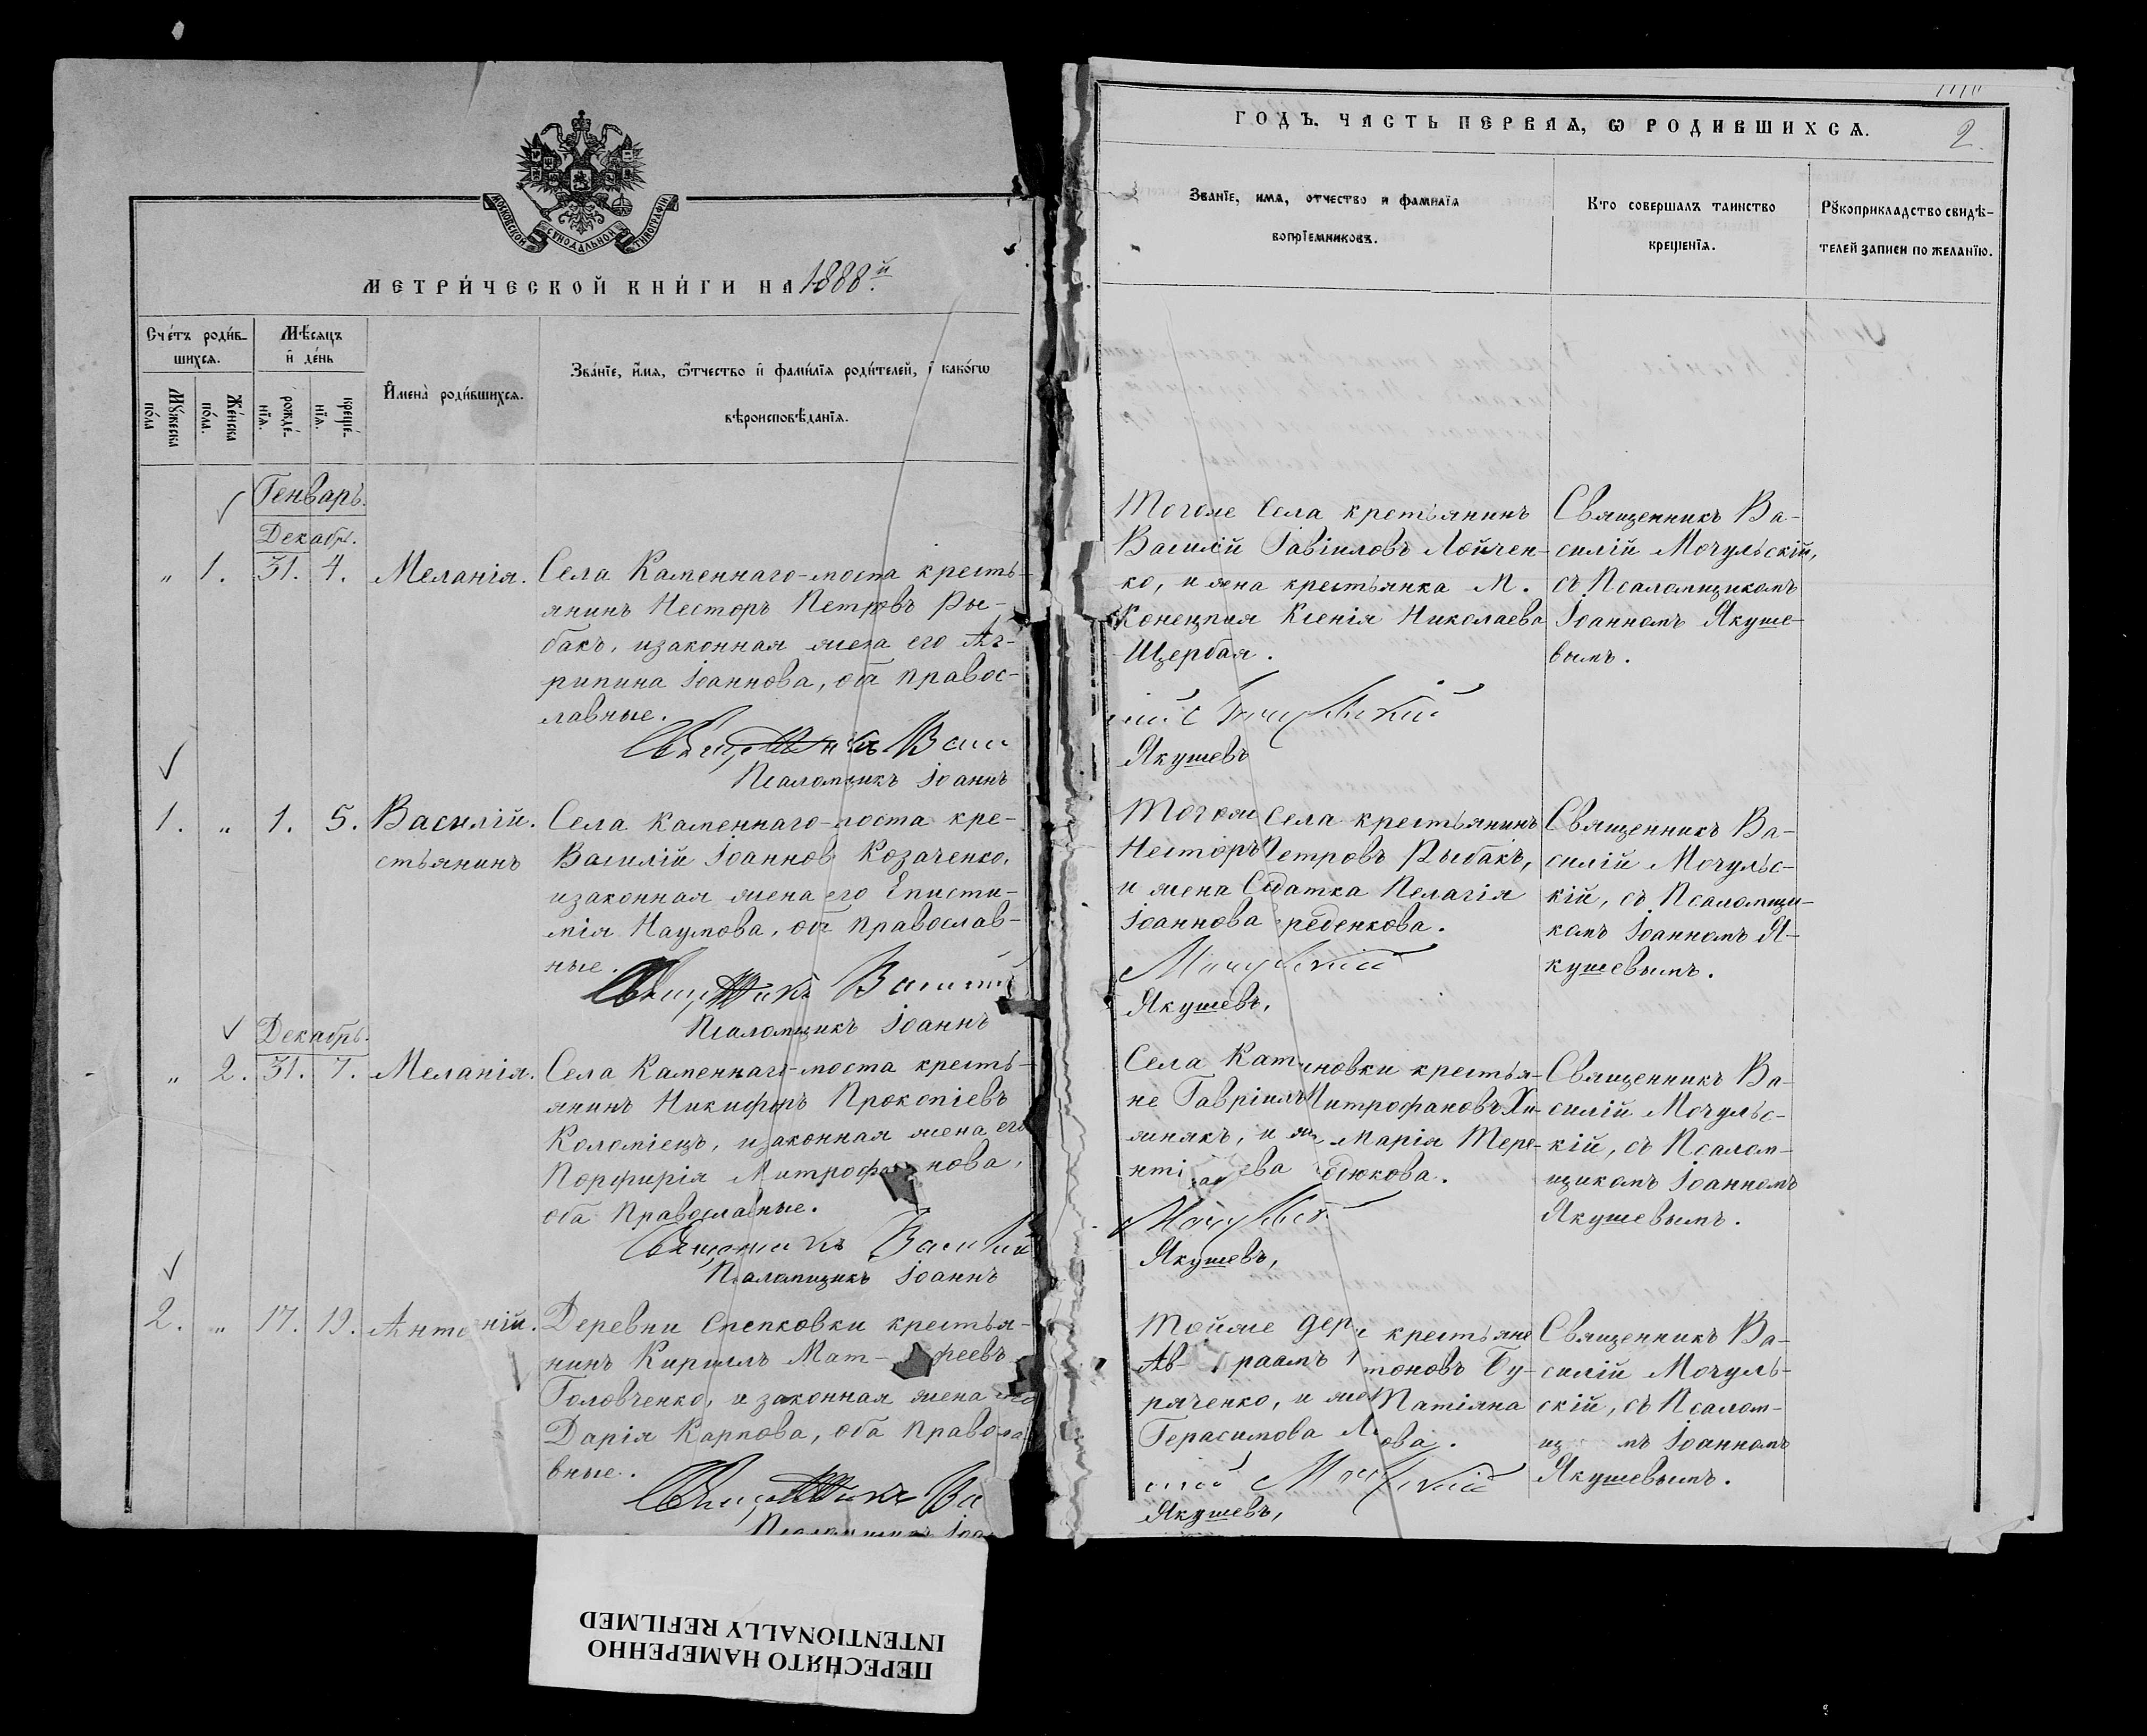 МОСКОВСКОЙ СѴНОДАЛЬНОЙ ТИПОГРАФІИ
МЕТРИ́ЧЕСКОЙ КНИ́ГИ НА 1888.й
Сче́тъ роди́в-
шихся.
Мѣ́сяцъ
и҆ де́нь
Мꙋ́жеска
по́ла
Же́нска
по́ла.
рожде́-
нїя.
креще́-
нїя.
И҆мена̀ роди́вшихся.
Зва́нїе, и҆́мя, ѻ҆́тчество и҆ фами́лїя роди́телей, и҆ како́гѡ
вѣроисповѣ́данїя.
Генварь.
Декабр.
„ 1. 31. 4. Меланія. Села Каменнаго-моста кресть-
янинъ Несторъ Петровъ Ры-
бакъ, изаконная жена его Аг-
рипина Іоаннова, оба правос-
лавные.
Священникъ Васи
Псаломщикъ Іоаннъ
1. „ 1. 5. Василій. Села Каменнаго-моста кре-
стьянинъ Василій Іоаннов Козаченко,
изаконная жена его Еписти-
мія Наумова, оба православ-
ные.
Священникъ Василій
Псаломщикъ Іоаннъ
Декабрь.
„ 2. 31. 7. Меланія. Села Каменнаго-моста кресть-
янинъ Никифоръ Прокопіевъ
Коломіецъ, изаконная жена его
Порфирія Митрофанова,
оба Православные.
Священникъ Василій
Псаломщикъ Іоаннъ
2. „ 17. 19. Антоній. Деревни Степковки крестья-
нинъ Кириллъ Мат-феевъ
Головченко, и законная жена его
Дарія Карпова, оба Правосла-
вные.
Священникъ Ва
Псаломщикъ Іоа
ГОДЪ. ЧАСТЬ ПЕРВАЯ, Ѡ РОДИВШИХСЯ.
2.
Званїе, имя, отчество и фамилїя
вопрїемниковъ.
Кто совершалъ таинство
крещенїя.
Рꙋкоприкладство свидѣ-
телей записи по желанїю.
Тогоже Села крестьянинъ
Василій Гавіиловъ Лойчен-
ко, и жена крестьянка М.
Конецпия Ксенія Николаева
Щербая.
Якушевъ
Священникъ Ва-
силій Мочульскій,
съ Псаломщикомъ
Іоанномъ Якуше-
вымъ.
Тогоже Села крестьянинъ
Несторъ Петровъ Рыбакъ,
и жена Солдатка Пелагія
Іоаннова реденкова.
Мочульскій
Якушевъ,
Священникъ Ва-
силій Мочульс-
кій, съ Псаломщи-
комъ Іоанномъ Я-
кушевымъ.
Села Кат новки крестья-
не Гавріилъ Митрофановъ Хи-
жнякъ, и Марія Тере-
нті ева дюкова.
Мочульскій
Якушевъ,
Священникъ Ва-
силій Мочульс-
кій, съ Псалом-
щикомъ Іоанномъ
Якушевымъ.
Тойже дер крестьяне
Ав- раамъ тоновъ Бу-
ряченко, и же Татіяна
Герасимова Л ова.
Мочульскій
Якушевъ,
Священникъ Ва-
силій Мочуль-
скій, съ Псалом-
щ мъ Іоанномъ
Якушевымъ.
ПЕРЕСНЯТО НАМЕРЕННО
INTENTIONALLY REFILMED